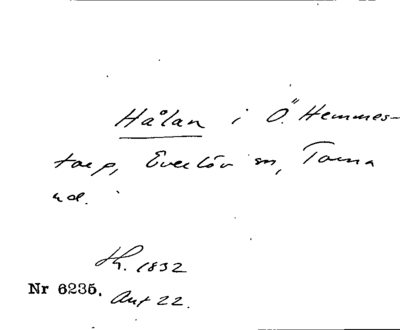 Hålan i Ö. Hemmes-
torp, Everlöv sn, Torna
hd.
Sk. 1832
Nr 6235. Ant 22.